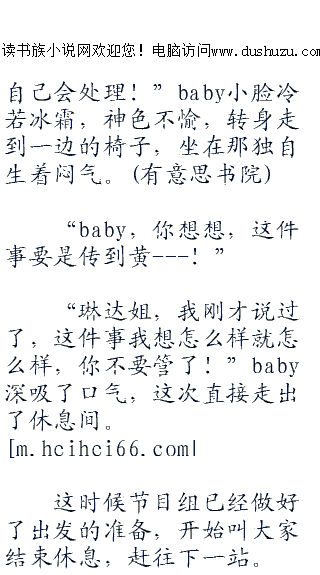 读书族小说网欢迎您！电脑访问www.dushuzu.com
自己会处理！”baby小脸冷
若冰霜，神色不愉，转身走
到一边的椅子，坐在那独自
生着闷气。(有意思书院)
“baby，你想想，这件
事要是传到黄---！”
“琳达姐，我刚才说过
了，这件事我想怎么样就怎
么样，你不要管了！”baby
深吸了口气，这次直接走出
了休息间。
[m.hcihci66.com|
这时候节目组已经做好
了出发的准备，开始叫大家
结束休息，赶往下一站。